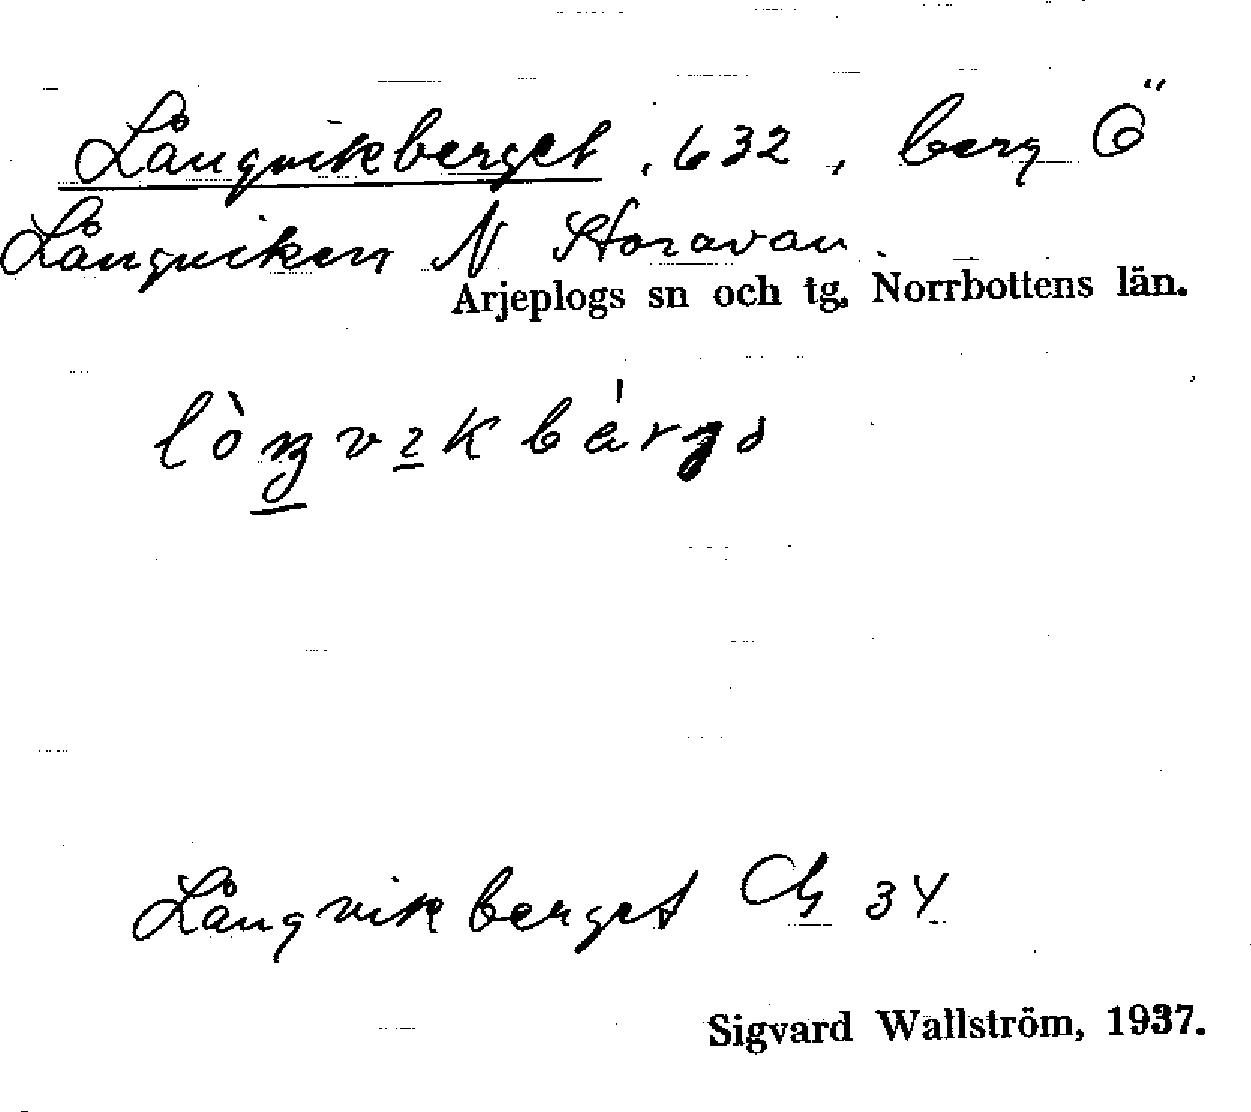 Långvikberget, 632, berg Ö
Långviken N Storavan.
Arjeplogs sn och tg. Norrbottens län.
Långvikberget 34
Sigvard Wallström, 1937.